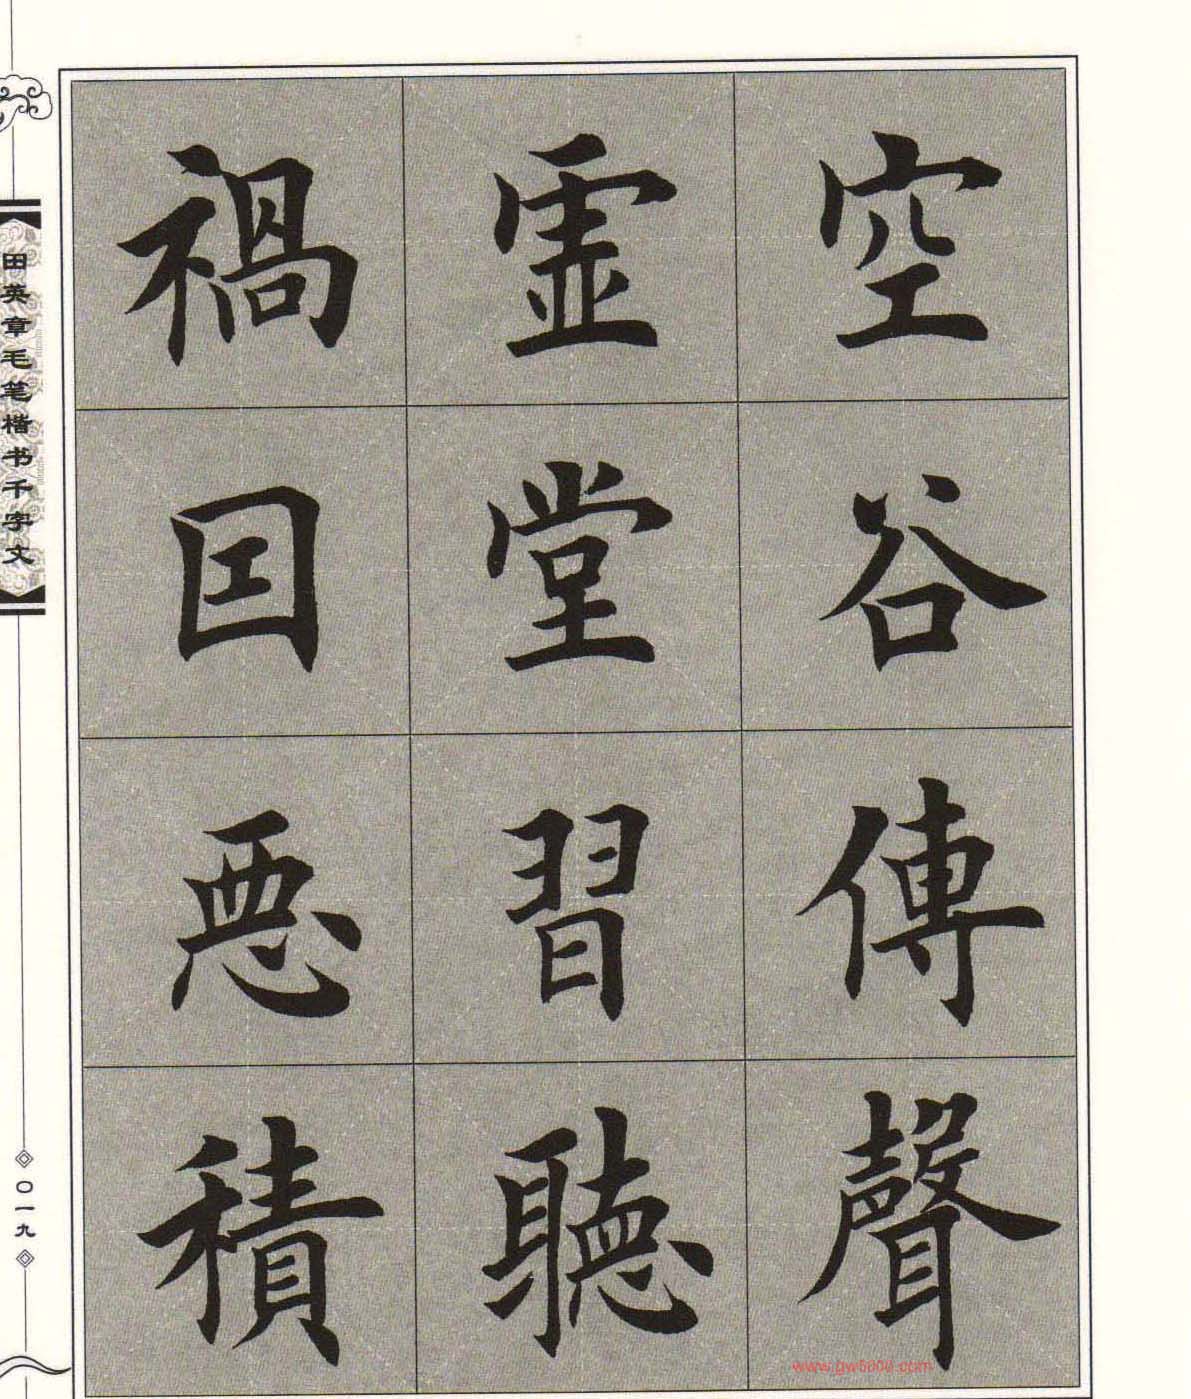 空谷傳聲
虚堂習聽
禍因惡積
田英章毛笔楷书千字文
〇一九
www.gw5000.com